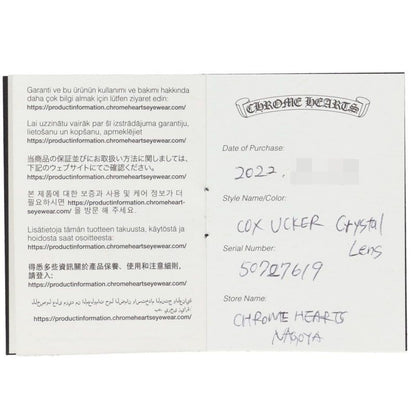 Garanti ve bu ürünün kullanımı ve bakımı hakkında
daha çok bilgi almak için lütfen ziyaret edin:
https://productinformation.chromeheartseyewear.com/
Lai uzzinātu vairāk par šī izstrādājuma garantiju,
lietošanu un kopšanu, apmeklējiet
https://productinformation.chromeheartseyewear.com/
当商品の保証並びにお取扱い方法に関しましては、
下記のウェブサイトにてご確認ください。
https://productinformation.chromeheartseyewear.com/
본 제품에 대한 보증과 사용 및 케어 정보가 더
필요하시면 https://productinformation.chromehearts-
eyewear.com/ 을 방문 해 주세요.
Lisätietoja tämän tuotteen takuusta, käytöstä ja
hoidosta saat osoitteesta:
https://productinformation.chromeheartseyewear.com/
得悉多些資訊關於產品保養、使用和注意細則，
請登入:
https://productinformation.chromeheartseyewear.com/
https://productinformation.chromeheartseyewear.com/
CHROME HEARTS
Date of Purchase:
2022.
Style Name/Color:
COX UCKER Crystal
Lens
Serial Number:
50727619
Store Name:
CHROME HEARTS
NAGOYA